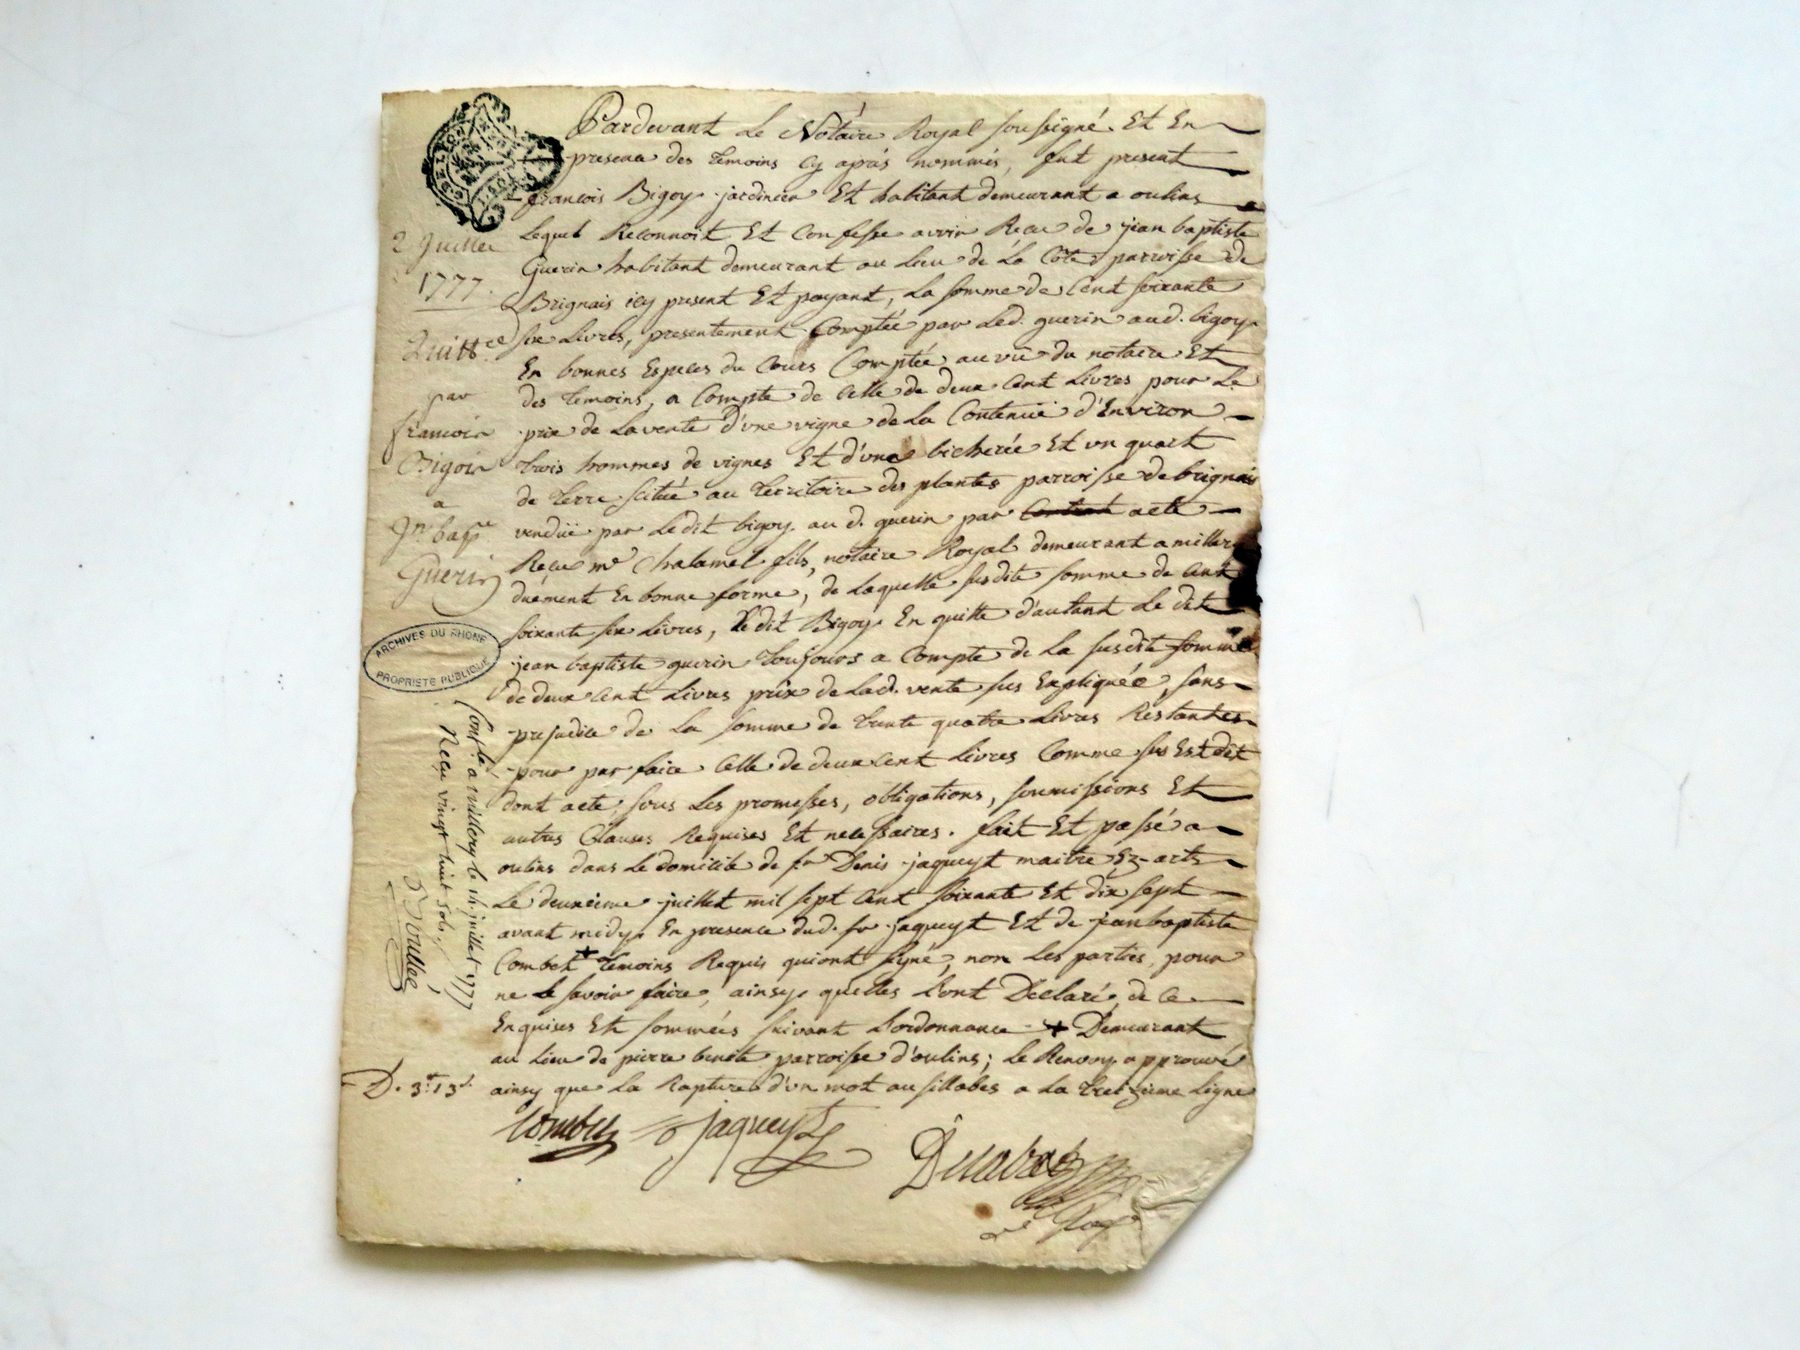 Pardevant Le Notaire Royal soussigné Et En
presence des temoins cy après nommés, fut present
françois Bigoy jardinier Et habitant demeurant a oulins
Lequel Reconnoit Et Confesse avoir Recu de jean baptiste
Guerin habitant demeurant au Lieu de La Côte parroisse de
Brignais icy present Et payant, La somme de Cent soixante
six Livres, presentement Comptée par Led. guerin aud. bigoy
En bonnes Especes du Cours Comptée au vû du notaire Et
des temoins, a Compte de Celle de deux Cent Livres pour Le
prix de La vente d'une vigne de La Contenüe d'Environ
trois hommes de vignes Et d'une bicherée Et un quart
de terre scituée au territoire des plantes parroisse de brignais
vendüe par Ledit bigoy au d. guerin par Contrat acte
Recu me Chalamel fils, notaire Royal demeurant a millery
duëment En bonne forme, de Laquelle susdite somme de Cent
soixante six Livres, Ledit Bigoy En quitte d'autant Le dit
jean baptiste guerin toujours a Compte de La susdite somme
de deux Cent Livres prix de Lad. vente sus Expliquée, sans
prejudice de La somme de trente quatre Livres Restantes
pour parfaire Celle de deux Cent Livres Comme sus Est dit
dont acte, sous Les promesses, obligations, soumissions Et
autres Clauses Requises Et necessaires. fait Et passé a
oulins dans Le domicile de sr Denis jaqueyt maitre Ez-arts
Le deuxieme juillet mil sept Cent soixante Et dix sept
avant midy En presence dud. sr jaqueyt Et de jean baptiste
Combet + temoins Requis qui ont signé, non Les parties pour
ne Le savoir faire, ainsy quelles L'ont Déclaré, de Ce
Enquises Et sommées suivant L'ordonnance + Demeurant
au Lieu de pierre benite parroisse d'oulins; Le Renvoy approuvé
ainsy que La Rapture d'un mot
a La treizieme Ligne
Combet
jaqueyt
2 Juillet
1777.
Quittce
par
françois
Bigoir
a
Jn bapte
Guerin
ARCHIVES DU RHONE
PROPRIETE PUBLIQUE
Contlé a millery le 14 juillet 1777
Recu vingt huit sols
D. 3# 13s